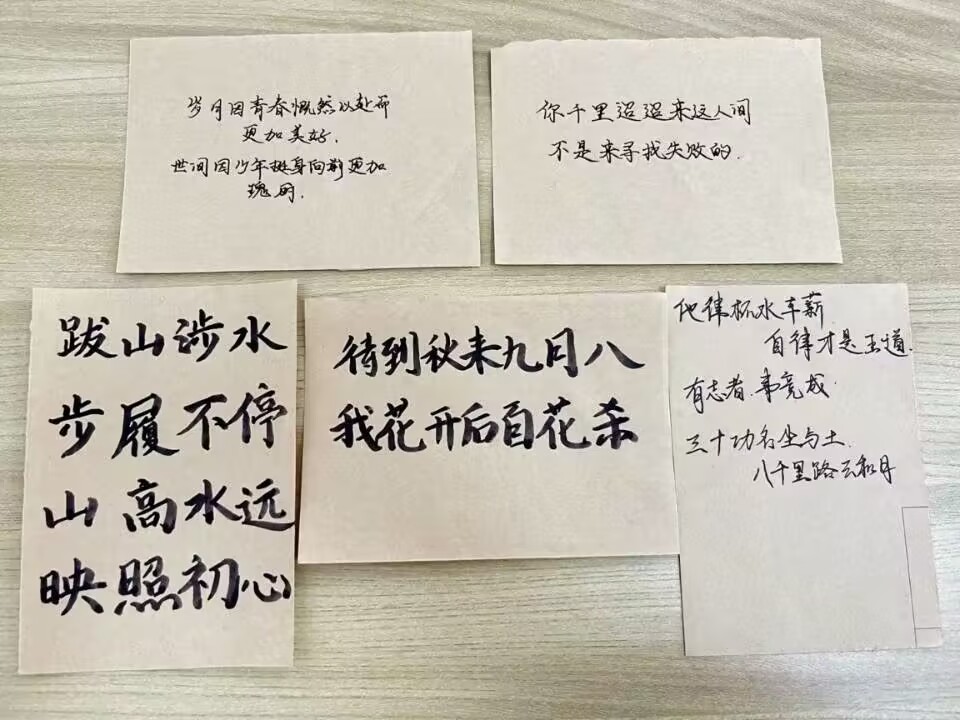 岁月因青春慨然以赴而
更加美好，
世间因少年挺身向前更加
瑰丽．
你千里迢迢来这人间
不是来寻找失败的．
跋山涉水
步履不停
山高水远
映照初心
待到秋来九月八
我花开后百花杀
他律杯水车薪
自律才是王道．
有志者．事竟成．
三十功名尘与土．
八千里路云和月